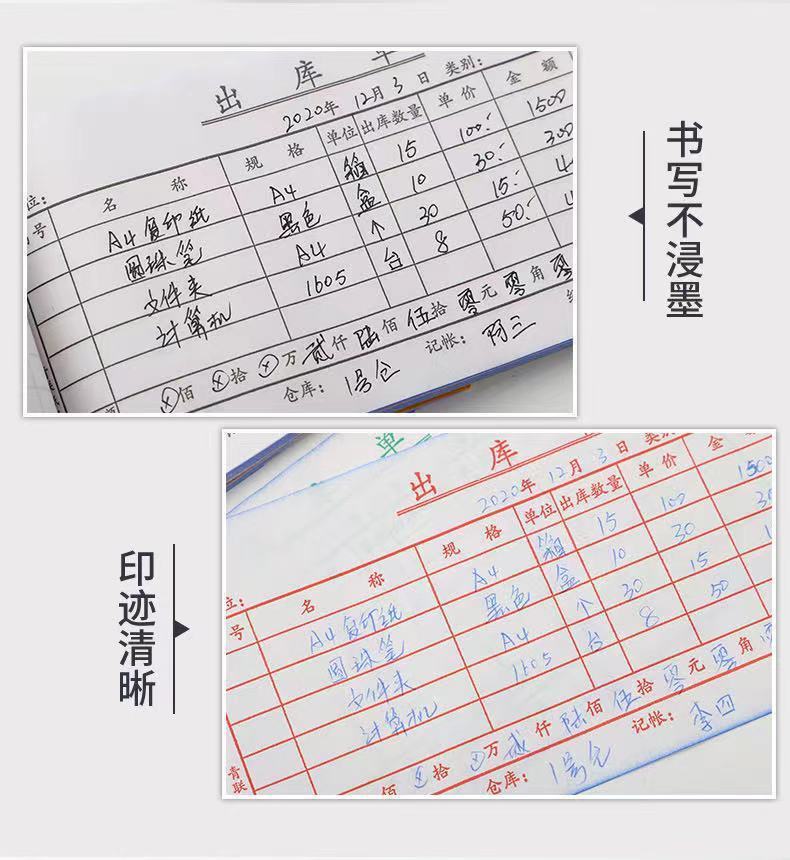 出 库 单
2020年 12月 3日 类别:
名 称 规 格 单位 出库数量 单 价 金 额
A4复印纸 A4 箱 15 100.- 1500
圆珠笔 黑色 盒 10 30.- 300
文件夹 A4 个 30 15.-
计算机 1605 台 8 50.-
佰 拾 万 贰仟 陆佰 伍拾 零元 零角
仓库: 1号仓 记帐: 阿三
书写不浸墨
单
出 库
2020年 12月 3日 类别
号 名 称 规 格 单位 出库数量 单 价 金 额
A4复印纸 A4 箱 15 100 1500
圆珠笔 黑色 盒 10 30
文件夹 A4 个 30 15
计算机 1605 台 8 50
佰 拾 万 贰仟 陆佰 伍拾 零元 零角
青联 仓库: 1号仓 记帐: 李四
印迹清晰